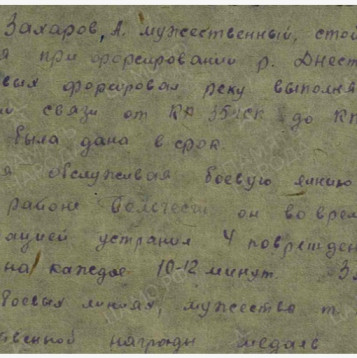 Захаров, А. мужественный, стой
я при форсировании р. Днест
вых форсировал реку выполня
й связи от КП 35 ГСК до КП
была дана в срок.
я обслуживая боевую линию
районе он во врем
ацией устранил 4 поврежден
на каждое 10-12 минут. За
боевых линиях, мужество т.
твенной награды медаль